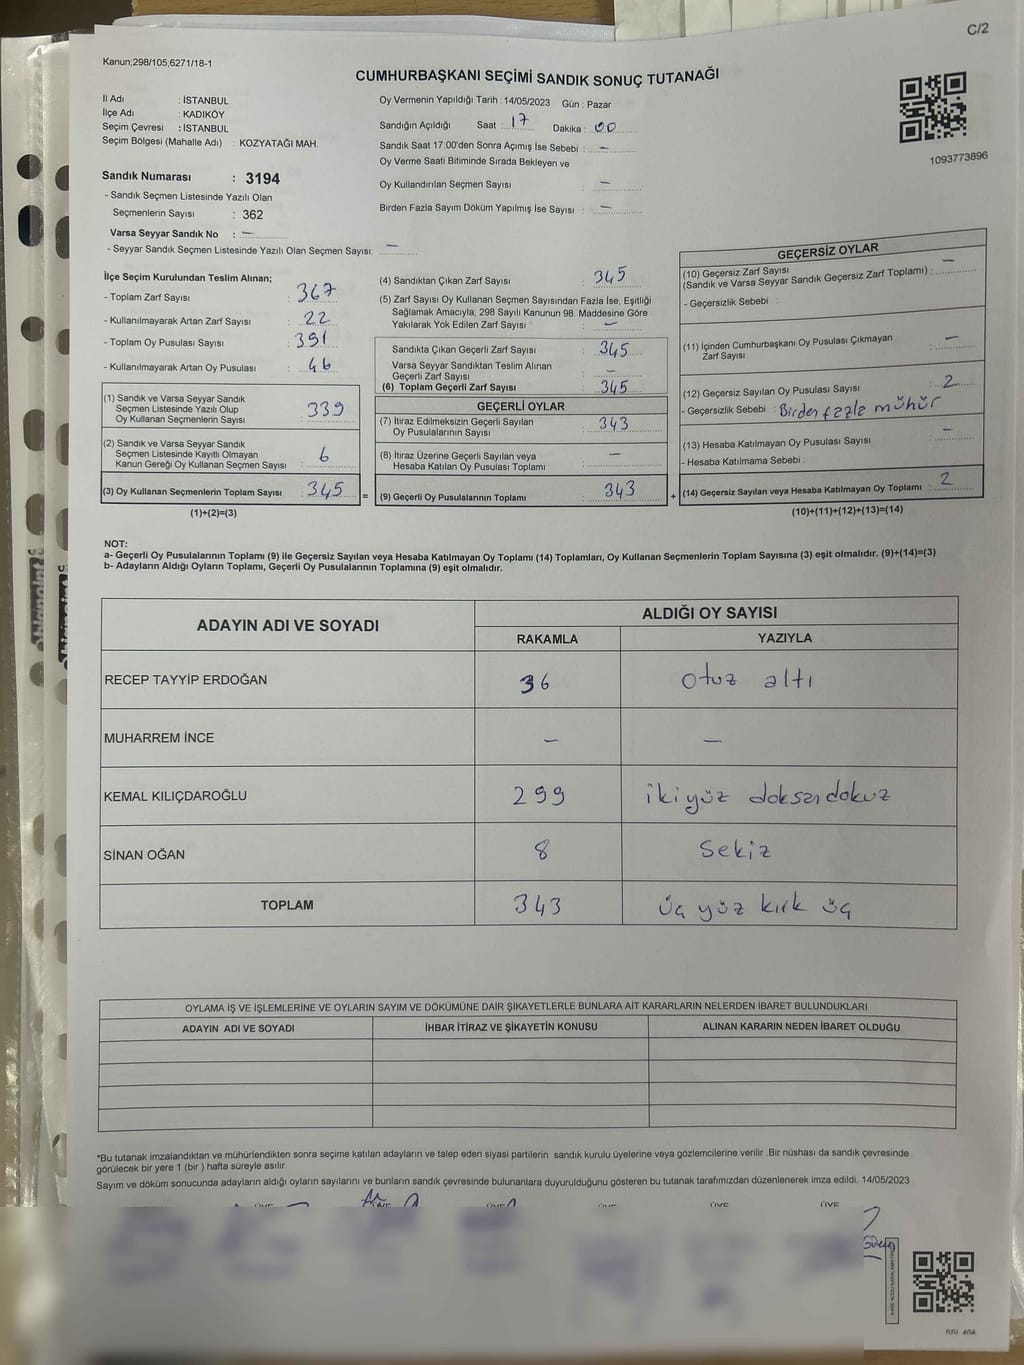 C/2
Kanun;298/105;6271/18-1
CUMHURBAŞKANI SEÇİMİ SANDIK SONUÇ TUTANAĞI
İl Adı : İSTANBUL
İlçe Adı : KADIKÖY
Seçim Çevresi : İSTANBUL
Seçim Bölgesi (Mahalle Adı) : KOZYATAĞI MAH.
Sandık Numarası : 3194
- Sandık Seçmen Listesinde Yazılı Olan
Seçmenlerin Sayısı : 362
Varsa Seyyar Sandık No : —
- Seyyar Sandık Seçmen Listesinde Yazılı Olan Seçmen Sayısı: —
Oy Vermenin Yapıldığı Tarih : 14/05/2023 Gün : Pazar
Sandığın Açıldığı Saat : 17 Dakika : 00
Sandık Saat 17:00'den Sonra Açımış İse Sebebi : —
Oy Verme Saati Bitiminde Sırada Bekleyen ve
Oy Kullandırılan Seçmen Sayısı : —
Birden Fazla Sayım Döküm Yapılmış İse Sayısı : —
1093773896
İlçe Seçim Kurulundan Teslim Alınan;
- Toplam Zarf Sayısı : 367
- Kullanılmayarak Artan Zarf Sayısı : 22
- Toplam Oy Pusulası Sayısı : 391
- Kullanılmayarak Artan Oy Pusulası : 46
(1) Sandık ve Varsa Seyyar Sandık
Seçmen Listesinde Yazılı Olup
Oy Kullanan Seçmenlerin Sayısı : 339
(2) Sandık ve Varsa Seyyar Sandık
Seçmen Listesinde Kayıtlı Olmayan
Kanun Gereği Oy Kullanan Seçmen Sayısı : 6
(3) Oy Kullanan Seçmenlerin Toplam Sayısı : 345
(1)+(2)=(3)
(4) Sandıktan Çıkan Zarf Sayısı : 345
(5) Zarf Sayısı Oy Kullanan Seçmen Sayısından Fazla İse, Eşitliği
Sağlamak Amacıyla; 298 Sayılı Kanunun 98. Maddesine Göre
Yakılarak Yok Edilen Zarf Sayısı : —
Sandıkta Çıkan Geçerli Zarf Sayısı : 345
Varsa Seyyar Sandıktan Teslim Alınan
Geçerli Zarf Sayısı : —
(6) Toplam Geçerli Zarf Sayısı : 345
GEÇERLİ OYLAR
(7) İtiraz Edilmeksizin Geçerli Sayılan
Oy Pusulalarının Sayısı : 343
(8) İtiraz Üzerine Geçerli Sayılan veya
Hesaba Katılan Oy Pusulası Toplamı : —
= (9) Geçerli Oy Pusulalarının Toplamı : 343
GEÇERSİZ OYLAR
(10) Geçersiz Zarf Sayısı
(Sandık ve Varsa Seyyar Sandık Geçersiz Zarf Toplamı) : —
- Geçersizlik Sebebi :
(11) İçinden Cumhurbaşkanı Oy Pusulası Çıkmayan
Zarf Sayısı : —
(12) Geçersiz Sayılan Oy Pusulası Sayısı : 2
- Geçersizlik Sebebi : Birden fazla mühür
(13) Hesaba Katılmayan Oy Pusulası Sayısı : —
- Hesaba Katılmama Sebebi :
+ (14) Geçersiz Sayılan veya Hesaba Katılmayan Oy Toplamı : 2
(10)+(11)+(12)+(13)=(14)
NOT:
a- Geçerli Oy Pusulalarının Toplamı (9) ile Geçersiz Sayılan veya Hesaba Katılmayan Oy Toplamı (14) Toplamları, Oy Kullanan Seçmenlerin Toplam Sayısına (3) eşit olmalıdır. (9)+(14)=(3)
b- Adayların Aldığı Oyların Toplamı, Geçerli Oy Pusulalarının Toplamına (9) eşit olmalıdır.
ADAYIN ADI VE SOYADI ALDIĞI OY SAYISI
RAKAMLA YAZIYLA
RECEP TAYYİP ERDOĞAN 36 otuz altı
MUHARREM İNCE — —
KEMAL KILIÇDAROĞLU 299 iki yüz doksan dokuz
SİNAN OĞAN 8 Sekiz
TOPLAM 343 üç yüz kırk üç
OYLAMA İŞ VE İŞLEMLERİNE VE OYLARIN SAYIM VE DÖKÜMÜNE DAİR ŞİKAYETLERLE BUNLARA AİT KARARLARIN NELERDEN İBARET BULUNDUKLARI
ADAYIN ADI VE SOYADI İHBAR İTİRAZ VE ŞİKAYETİN KONUSU ALINAN KARARIN NEDEN İBARET OLDUĞU
*Bu tutanak imzalandıktan ve mühürlendikten sonra seçime katılan adayların ve talep eden siyasi partilerin sandık kurulu üyelerine veya gözlemcilerine verilir. Bir nüshası da sandık çevresinde
görülecek bir yere 1 (bir ) hafta süreyle asılır.
Sayım ve döküm sonucunda adayların aldığı oyların sayılarını ve bunların sandık çevresinde bulunanlara duyurulduğunu gösteren bu tutanak tarafımızdan düzenlenerek imza edildi. 14/05/2023
ÜYE ÜYE ÜYE